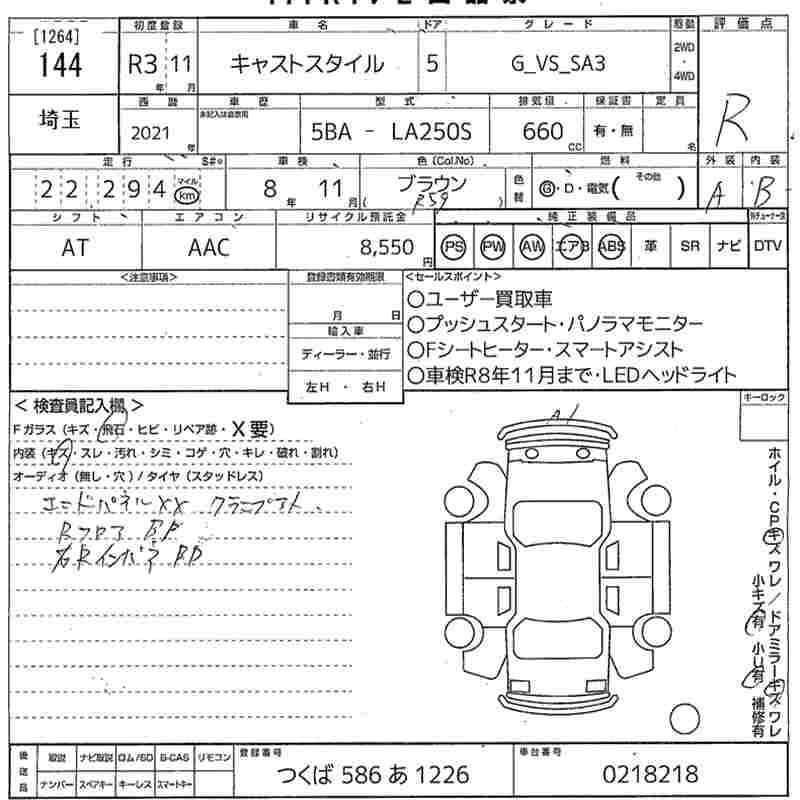 [1264]
144
埼玉
初度登録
R3 11
年 月
車名
キャストスタイル
ドア
5
グレード
G_VS_SA3
駆動
2WD
・
4WD
評価点
R
西暦
2021
年
車歴
未記入は自家用
型式
5BA - LA250S
排気量
660
CC
保証書
有・無
定員
名
走行 S#*
22 294
マイル
km
車検
8 年 11 月
色(Col.No)
ブラウン
( R59 )
色替
燃料
G・D・電気( その他 )
外装
A
内装
B
シフト
AT
エアコン
AAC
リサイクル預託金
8,550
円
純正装備品
PS PW AW エアB ABS 革 SR ナビ DTV
<注意事項>
登録書類有効期限
月 日
輸入車
ディーラー・並行
左H ・ 右H
<セールスポイント>
○ユーザー買取車
○プッシュスタート・パノラマモニター
○Fシートヒーター・スマートアシスト
○車検R8年11月まで・LEDヘッドライト
キーロック
< 検査員記入欄 >
Fガラス (キズ・飛石・ヒビ・リペア跡・X要)
内装 (キズ・スレ・汚れ・シミ・コゲ・穴・キレ・破れ・割れ)
オーディオ (無し・穴) / タイヤ (スタッドレス)
エンドパネルXX クランプアト、
Rフロア BP
右RインパネBP
A1
ホイル・CPキズ ワレ / ドアミラーキズ ワレ
小キズ有 小U有 補修有
後送品
取説 ナビ取説 ロム/SD G-CAS リモコン
ナンバー スペアキー キーレス スマートキー
登録番号
つくば 586 あ 1226
車台番号
0218218